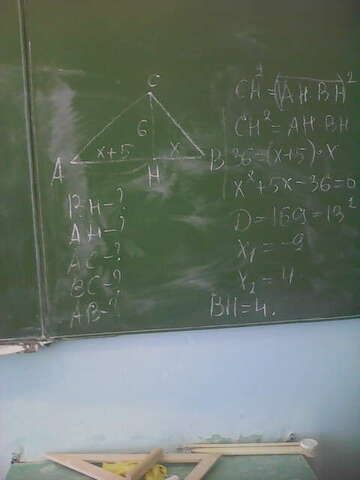 C
6
x+5
x
A
H
B
BH-?
AH-?
AC-?
BC-?
AB-?
CH²=(√AH·BH)²
CH²=AH·BH
36=(x+5)·x
x²+5x-36=0
D=169=13²
x₁=-9
x₂=4
BH=4.